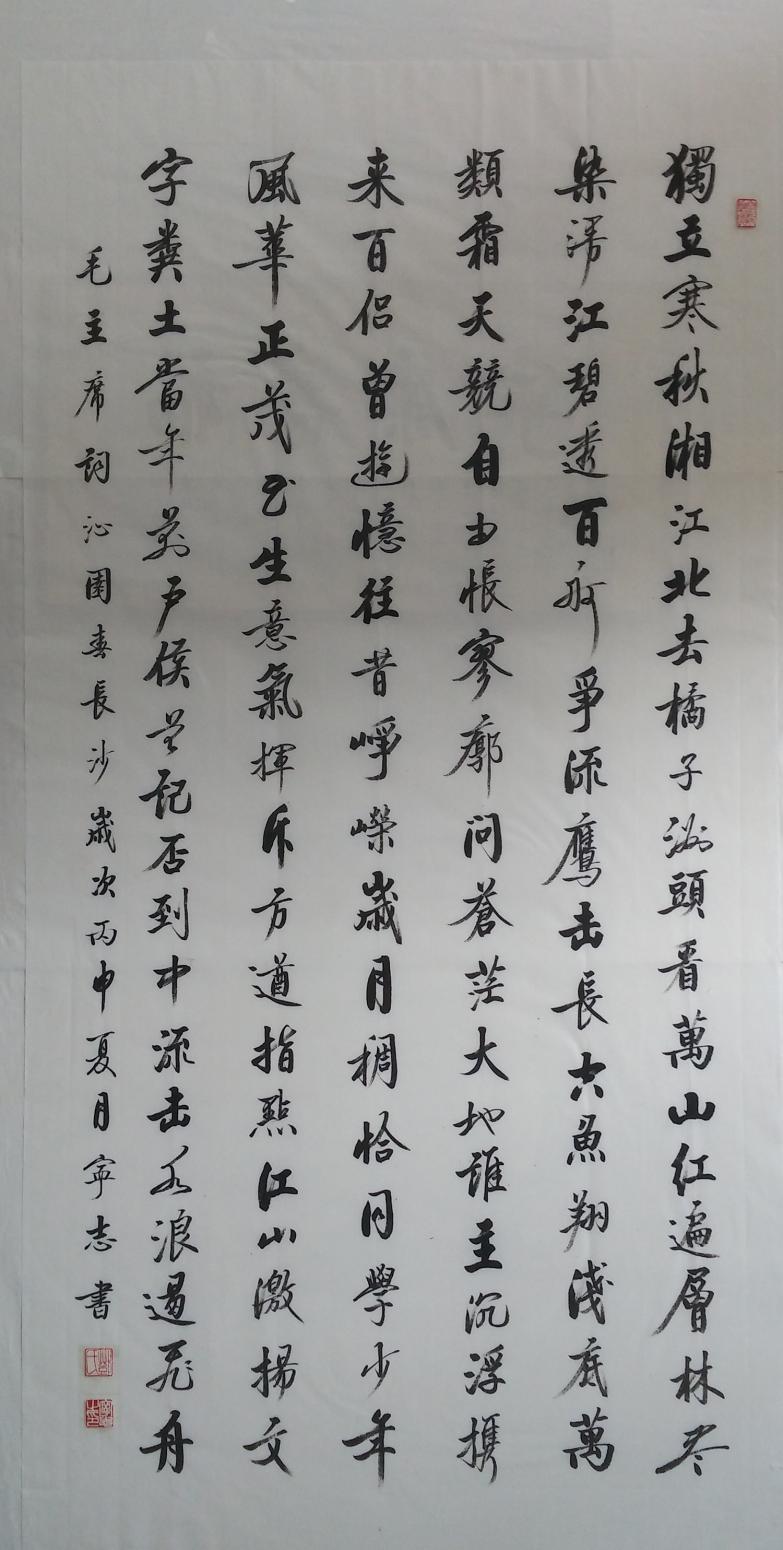 獨立寒秋湘江北去橘子洲頭看萬山红遍層林尽
染漫江碧透百舸爭流鷹击長空魚翔淺底萬
類霜天競自由悵寥廓问蒼茫大地誰主沉浮携
来百侣曾遊憶往昔崢嶸歲月稠恰同學少年
風華正茂书生意氣揮斥方遒指點江山激揚文
字糞土當年萬户侯曾記否到中流击水浪遏飛舟
毛主席詞沁園春長沙歲次丙申夏月寧志書